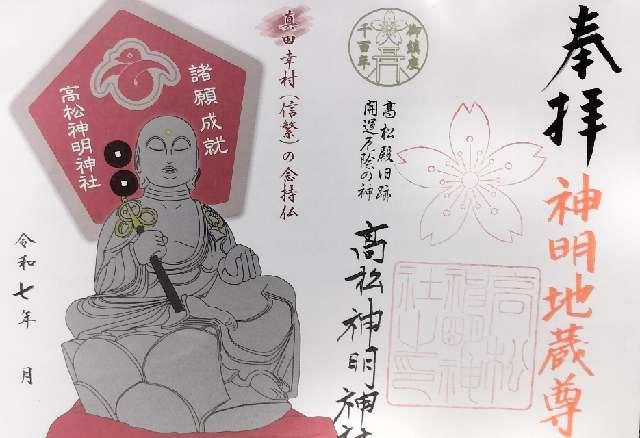 奉拝
神明地蔵尊
御鎮座
千百年
高松殿旧跡
開運厄除の神
高松神明神社
高松神明神社之印
真田幸村(信繁)の念持仏
諸願成就
高松神明神社
令和七年 月